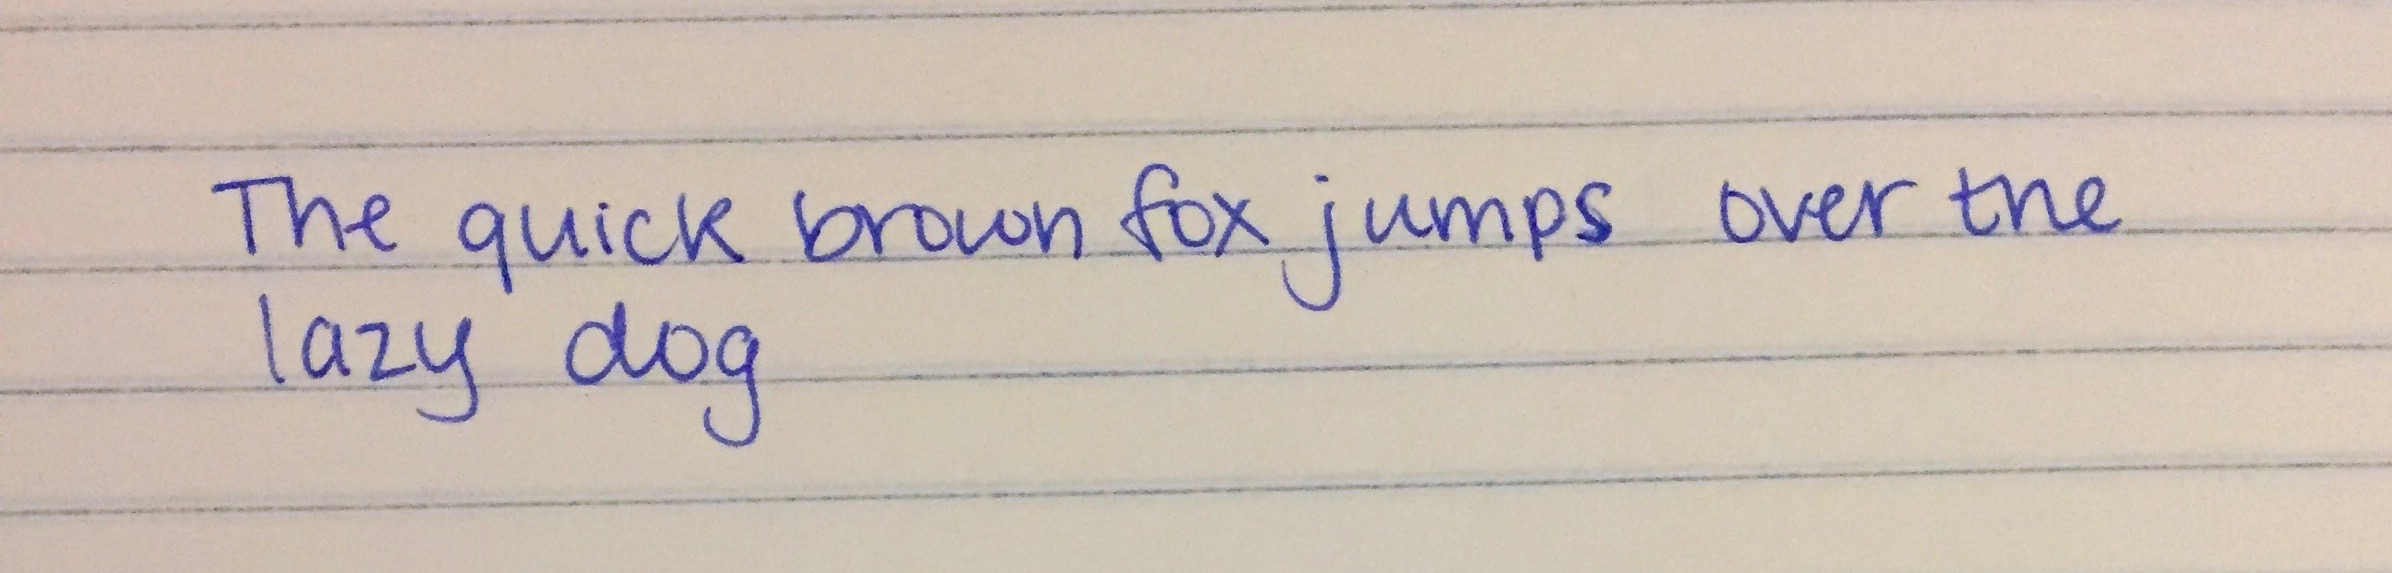 The quick brown fox jumps over the
lazy dog